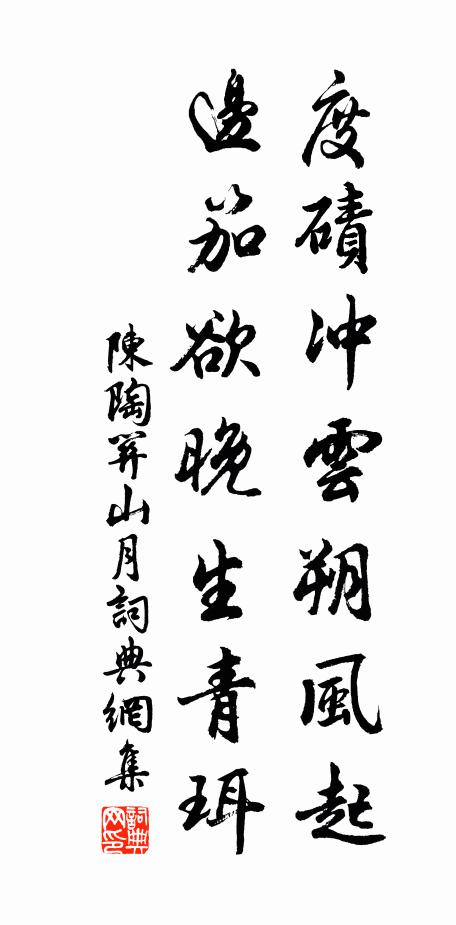 度磧冲雲朔風起
邊笳欲晚生青珥
陳陶關山月詞典網集
詞典網印